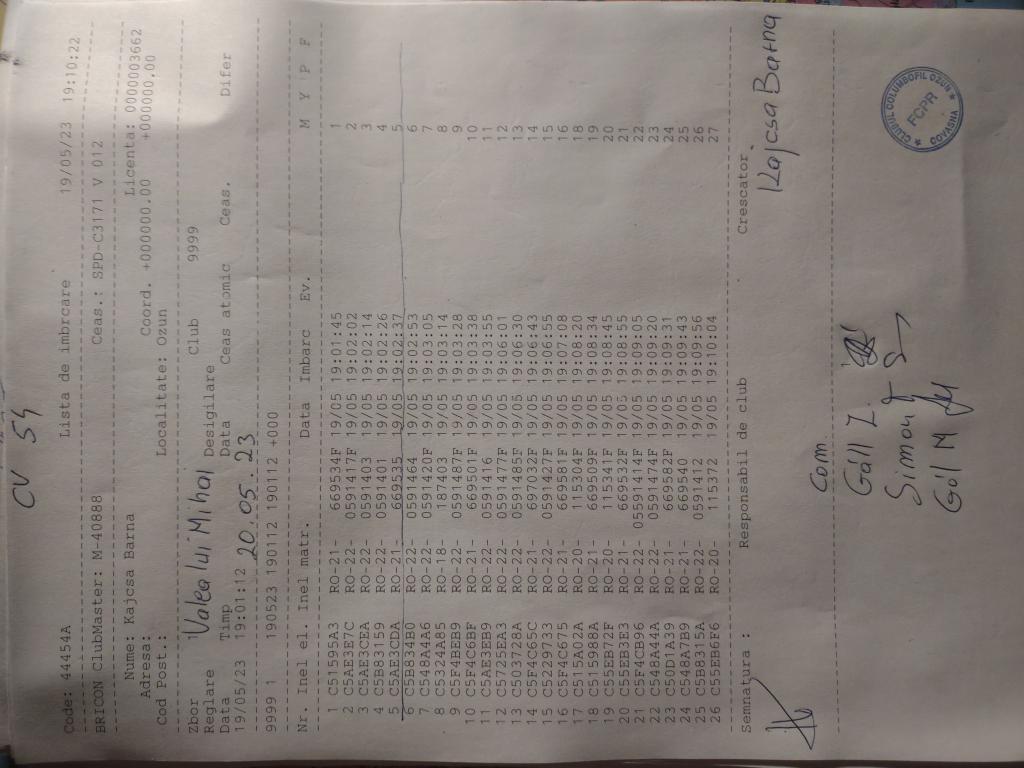 CV 54
Code: 44454A Lista de imbrcare 19/05/23 19:10:22
BRICON ClubMaster: M-40888 Ceas.: SPD-C3171 V 012
Nume: Kajcsa Barna Licenta: 0000003662
Adresa: Coord. +000000.00 +000000.00
Cod Post.: Localitate: Ozun
Zbor Valea lui Mihai Club 9999
Reglare Desigilare
Data Timp Data Ceas atomic Ceas. Difer
19/05/23 19:01:12 20.05.23
9999 1 190523 190112 190112 +000
Nr. Inel el. Inel matr. Data Imbarc Ev. M Y P F
1 C51595A3 RO-21- 669534F 19/05 19:01:45 1
2 C5AE3E7C RO-22- 0591417F 19/05 19:02:02 2
3 C5AE3CEA RO-22- 0591403 19/05 19:02:14 3
4 C5B83159 RO-22- 0591401 19/05 19:02:26 4
5 C5AE3CDA RO-21- 669535 19/05 19:02:37 5
6 C5B834B0 RO-22- 0591464 19/05 19:02:53 6
7 C548A4A6 RO-22- 0591420F 19/05 19:03:05 7
8 C5324A85 RO-18- 187403 19/05 19:03:14 8
9 C5F4BEB9 RO-22- 0591487F 19/05 19:03:28 9
10 C5F4C6BF RO-21- 669501F 19/05 19:03:38 10
11 C5AE3EB9 RO-22- 0591416 19/05 19:03:55 11
12 C5725EA3 RO-22- 0591477F 19/05 19:06:01 12
13 C503728A RO-22- 0591485F 19/05 19:06:30 13
14 C5F4C65C RO-21- 697032F 19/05 19:06:43 14
15 C5229733 RO-22- 0591427F 19/05 19:06:55 15
16 C5F4C675 RO-21- 669581F 19/05 19:07:08 16
17 C515A02A RO-20- 115304F 19/05 19:08:20 18
18 C515988A RO-21- 669509F 19/05 19:08:34 19
19 C55EB72F RO-20- 115341F 19/05 19:08:45 20
20 C55EB3E3 RO-21- 669532F 19/05 19:08:55 21
21 C5F4CB96 RO-22- 0591414F 19/05 19:09:05 22
22 C548A44A RO-22- 0591474F 19/05 19:09:20 23
23 C50D1A39 RO-21- 669582F 19/05 19:09:31 24
24 C548A7B9 RO-21- 669540 19/05 19:09:43 25
25 C5B8315A RO-22- 0591412 19/05 19:09:56 26
26 C55EB6F6 RO-20- 115372 19/05 19:10:04 27
Semnatura : Responsabil de club Crescator.
Kajcsa Barna
Com
Gáll Z.
Simon
Gál M
CLUBUL COLUMBOFIL OZUN
FCPR
COVASNA